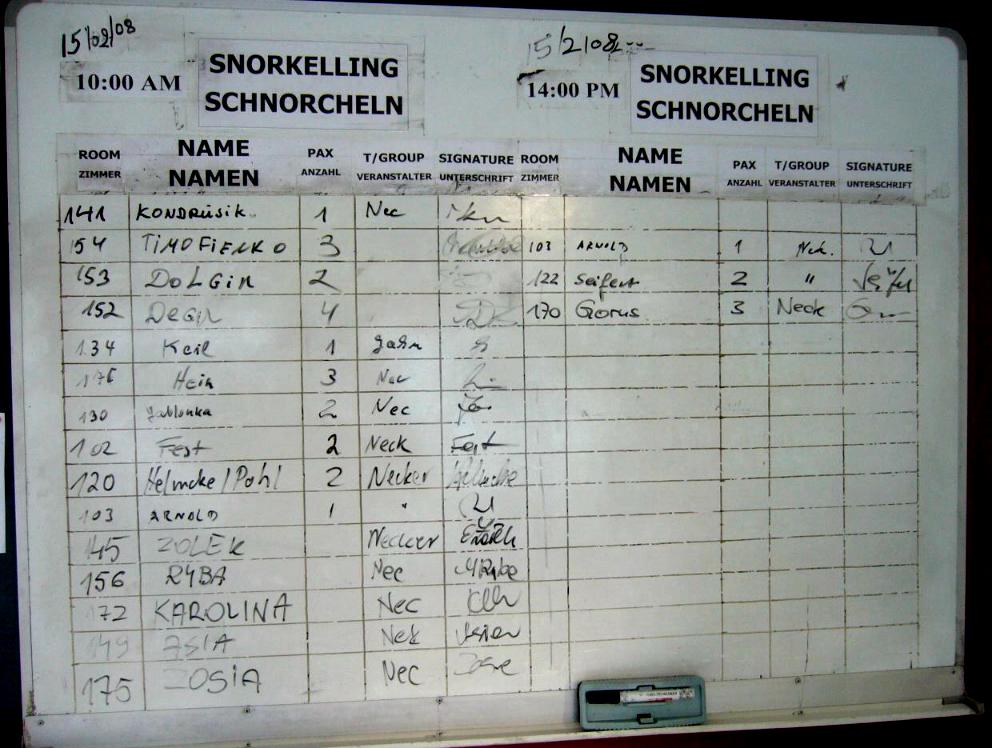 15/02/08
10:00 AM
SNORKELLING
SCHNORCHELN
ROOM NAME PAX T/GROUP SIGNATURE
ZIMMER NAMEN ANZAHL VERANSTALTER UNTERSCHRIFT
141 KONDRUSIK 1 Nec
154 TIMOFIENKO 3
153 DOLGIN 2
152 Dean 4
134 Keil 1 Jahn
176 Hein 3 Nec
130 Jablonka 2 Nec
102 Fest 2 Neck Fest
120 Helmcke/Pohl 2 Necker
103 ARNOLD 1 "
145 ZOLEK Necker
156 RYBA Nec
172 KAROLINA Nec
149 ZSIA Nek
175 ZOSIA Nec
15/2/08
14:00 PM
SNORKELLING
SCHNORCHELN
ROOM NAME PAX T/GROUP SIGNATURE
ZIMMER NAMEN ANZAHL VERANSTALTER UNTERSCHRIFT
103 ARNOLD 1 Neck.
122 Seifert 2 "
170 Gorus 3 Neck